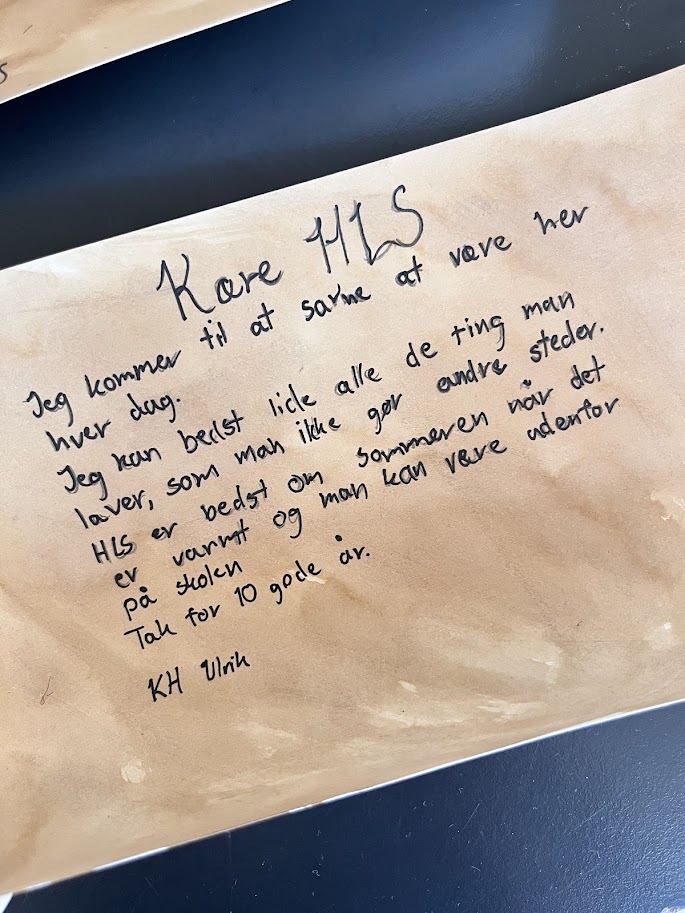 Kære HLS
Jeg kommer til at savne at være her
hver dag.
Jeg kan bedst lide alle de ting man
laver, som man ikke gør andre steder.
HLS er bedst om sommeren når det
er varmt og man kan være udenfor
på skolen
Tak for 10 gode år.
KH Ulrik